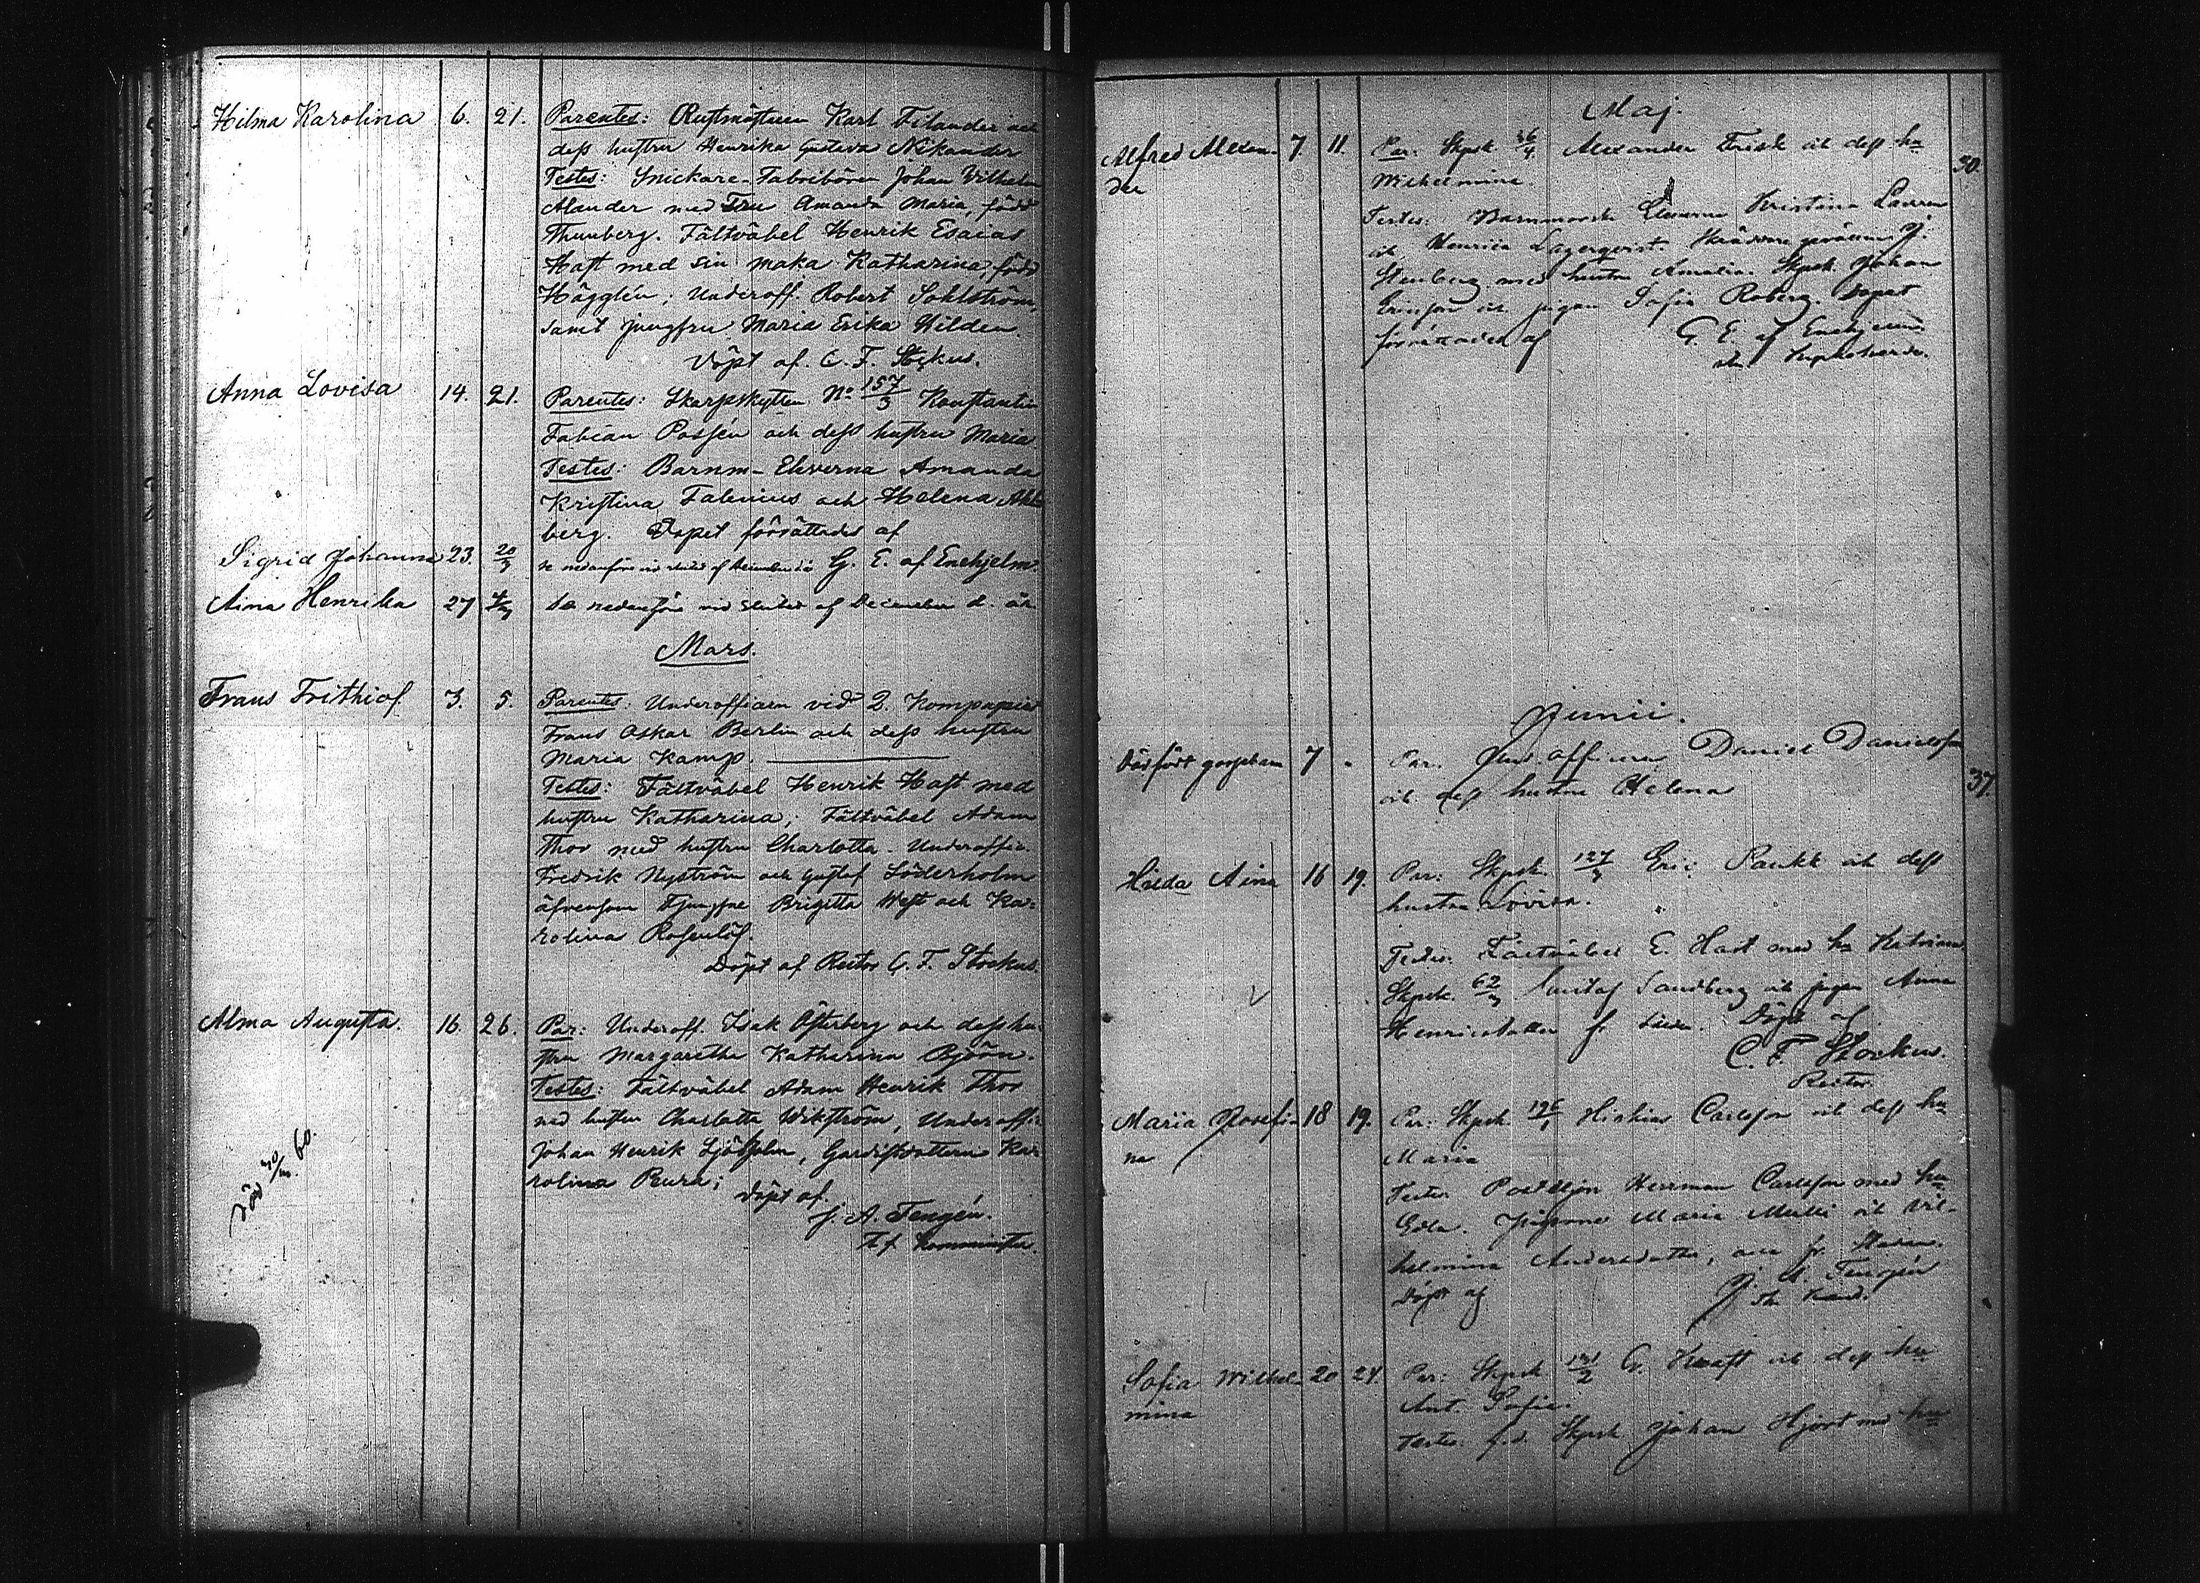 Hilma Karolina 6. 21. Parentes: Rustmästaren Karl Filander och
dess hustru Henrika Gustava Nikander
Testes: Snickare-Fabrikören Johan Wilhelm
Alander med Fru Amanda Maria, född
Thunberg. Fältväbel Henrik Esaias
Haft med sin maka Katharina, född
Hägglén; Underoff. Robert Sohlström,
samt jungfru Maria Erika Hilden.
Döpt af. C. F. Stockus.
Anna Lovisa 14. 21. Parentes: Skarpskytten No 157/3 Konstantin
Fabian Possén och dess hustru Maria
Testes: Barnm-Eleverna Amanda
Kristina Falenius och Helena Ahl
berg. Dopet förrättades af
Sigrid Johanna 23. 20/3 se nedanföre vid slutet af December G. E. af Enehjelm.
Aina Henrika 27 se nedanföre vid slutet af December d. år.
Mars.
Frans Frithiof 3. 5. Parentes: Underofficeren vid 2. Kompagniet
Frans Oskar Berlin och dess hustru
Maria Kamp.
Testes: Fältväbel Henrik Haft med
hustru Katharina; Fältväbel Adam
Thor med hustru Charlotta. Underoffic.
Fredrik Nyström och Gustaf Söderholm
äfvensom Jungfru Brigitta West och Ka-
rolina Rosenlöf.
Döpt af Rector C. F. Stockus.
Alma Augusta. 16. 26. Par: Underoff. Isak Österberg och dess hu-
stru Margaretha Katharina Björn.
Testes: Fältväbel Adam Henrik Thor
med hustru Charlotta Wikström, Underoffic.
Johan Henrik Sjöholm, Gardistdottern Ka-
rolina Rura;
Döpt af.
J. A. Tengén.
Kommnister.
död 60.
Maj.
Alfred Alexan- 7. 11. Par: Skpsk 36/4 Alexander Frisk ock dess hu
der Wilhelmina.
30.
Testes: Barnmorsk Eleverna Kristina Lauren
ock Henrica Lagerqvist. Skräddare gesällen J.
Stenberg med hustru Amalia. Skpsk. Johan
ock pigan Sofia Roberg. Dopet
förrättades af G. E. af Enehjelm.
Junii.
Dödfödt gossebarn 7 - Par. Und. officeren Daniel Danielsson
ock dess hustru Helena
37.
Hilda Aina 16 19. Par: Skpsk. 127/3 Eric Paukk ock dess
hustru Lovisa.
Testes. Fältväbel E. Haft med hu Katarina
Skpsk. 62/3 Gustaf Sandberg ock pigan Anna
Henriksdotter fr. Döpt af
C. F. Stockus.
Rector.
Maria Josefi- 18 19. Par: Skpsk Carlsson ock dess hu
na Maria
Testes Herrman Carlsson med hu
Edla. Pigorna Maria Matti ock Vil-
helmina Andersdotter,
Döpt af J. A. Tengén
Sofia Wilhel- 20 24 Par: Skpsk 131/2 G. Kraft ock dess hu
mina Ant. Sofia.
Testes. f.d. Skpsk Johan Hjort med hu